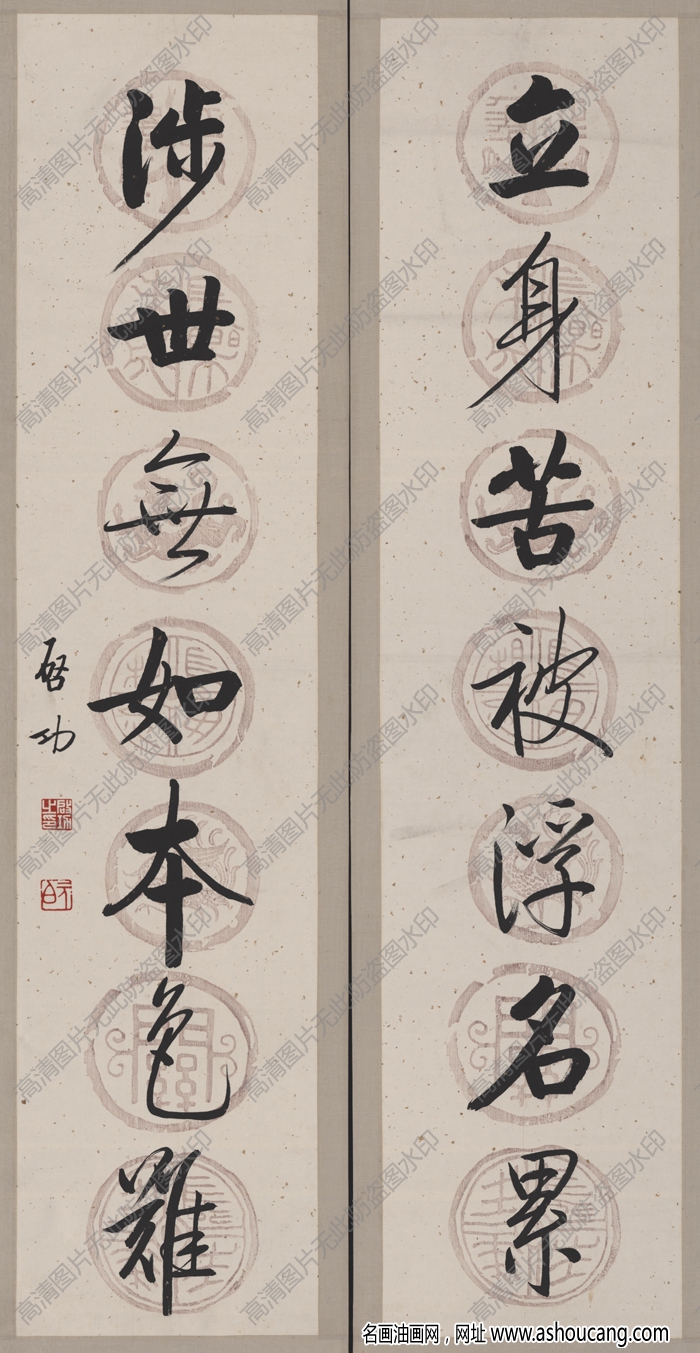 立身苦被浮名累
涉世無如本色難
啓功
啓功之印
高清图片无此防盗图水印
名画油画网，网址 www.ashoucang.com